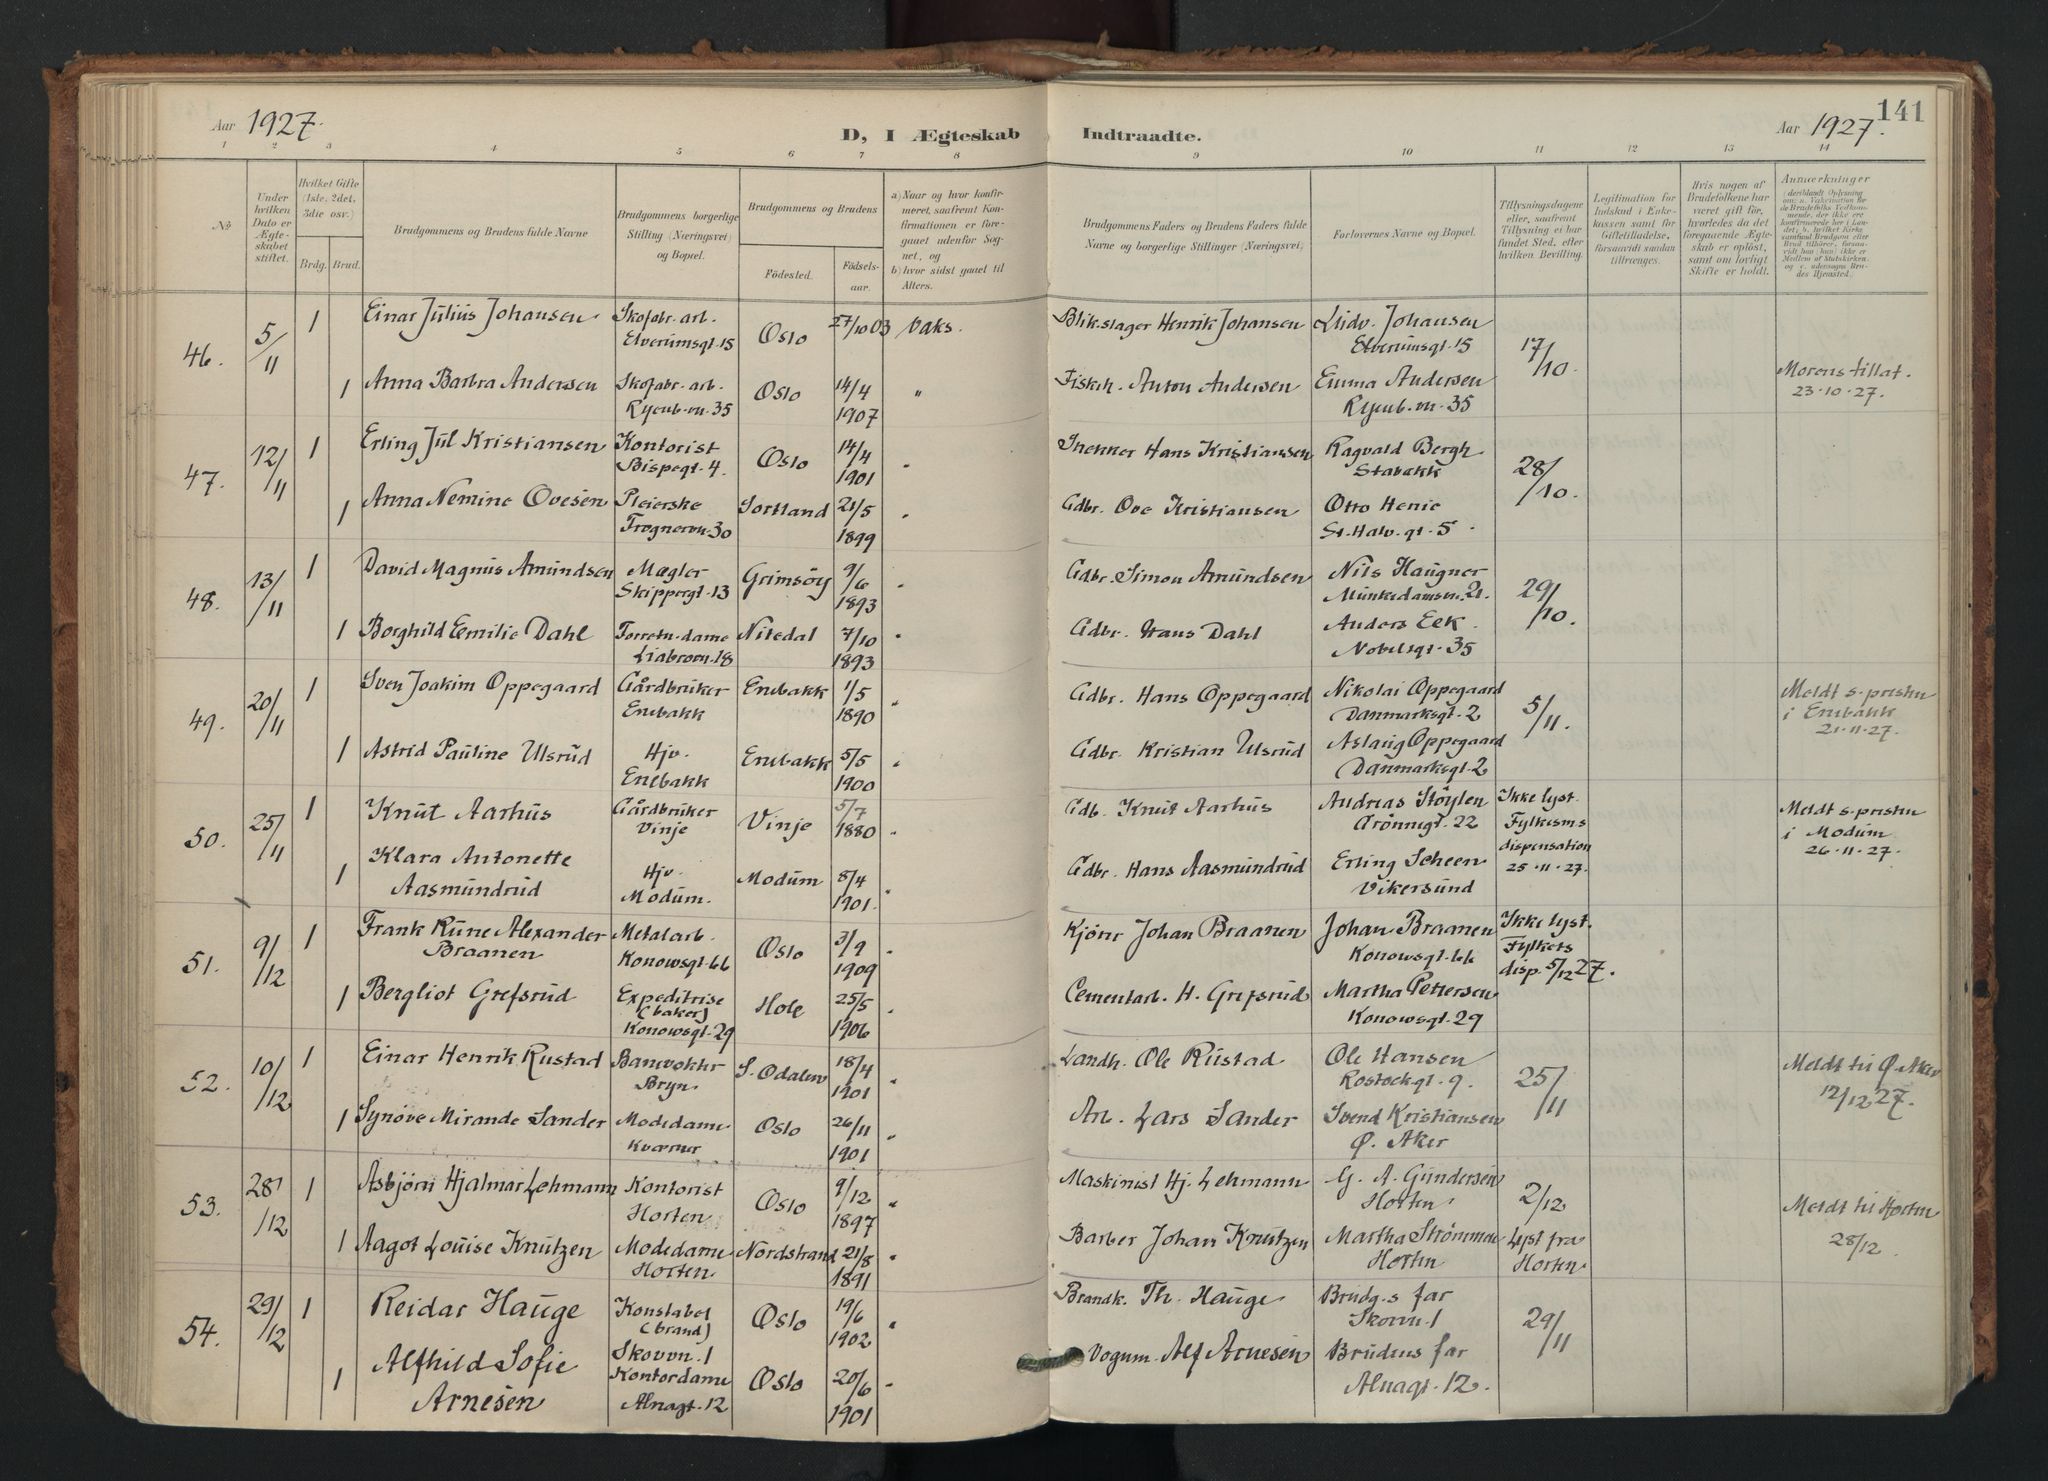 141
Aar 1927.
D, I Ægteskab Indtraadte.
Aar 1927.
1 2 3 4 5 6 7 8 9 10 11 12 13 14
№
Under hvilken Dato er Ægteskabet stiftet.
Hvilket Gifte (1ste, 2det, 3die osv.)
Brdg. Brud.
Brudgommens og Brudens fulde Navne
Brudgommens borgerlige Stilling (Næringsvei) og Bopæl.
Brudgommens og Brudens
Fødested.
Fødselsaar.
a) Naar og hvor konfirmeret, saafremt Konfirmationen er foregaaet udenfor Sognet, og
b) hvor sidst gaaet til Alters.
Brudgommens Faders og Brudens Faders fulde Navne og borgerlige Stillinger (Næringsvei)
Forlovernes Navne og Bopæl.
Tillysningsdagene eller, saafremt Tillysning ei har fundet Sted, efter hvilken Bevilling.
Legitimation for Indskud i Enkekassen samt for Giftetilladelse, forsaavidt saadan tiltrænges.
Hvis nogen af Brudefolkene har været gift før, hvorledes da det foregaaende Ægteskab er opløst, samt om lovligt Skifte er holdt.
Anmærkninger
46. 5/11 1 Einar Julius Johansen Skofabr. arb. Elverumsgt 15 Oslo 27/10 03 Vaks. Blikslager Henrik Johansen Ludv. Johansen Elverumsgt 15 17/10
1 Anna Barbra Andersen Skofabr. arb. Ryenb. vn. 35 Oslo 14/4 1907 " Fiskeh. Anton Andersen Emma Andersen Ryenb. vn. 35 Morens tillat. 23-10-27.
47. 12/11 1 Erling Jul Kristiansen Kontorist Bispegt 4. Oslo 14/4 1901 " Snekker Hans Kristiansen Ragvald Bergh Stabekk 28/10.
1 Anna Nemine Ovesen Pleierske Frognervn. 30 Sortland 21/5 1899 " Gdbr. Ove Kristiansen Otto Henie St. Halv. gt. 5
48. 13/11 1 David Magnus Amundsen Mægler Skippergt. 13 Grimsøy 9/6 1893 " Gdbr. Simon Amundsen Nils Haugner Munkedamsvn. 21. 29/10.
1 Borghild Emilie Dahl Forretn. dame Liabrovn. 18 Nitedal 7/10 1893 " Gdbr. Hans Dahl Anders Eek Nobelsgt. 35
49. 20/11 1 Sven Joakim Oppegaard Gårdbruker Enebakk Enebakk 1/5 1890 " Gdbr. Hans Oppegaard Nikolai Oppegaard Danmarksgt. 2 5/11. Meldt s. presten i Enebakk 21-11-27.
1 Astrid Pauline Ulsrud Hjv. Enebakk Enebakk 5/5 1900 " Gdbr. Kristian Ulsrud Aslaug Oppegaard Danmarksgt. 2
50. 25/11 1 Knut Aarhus Gårdbruker Vinje Vinje 5/7 1880 " Gdb. Knut Aarhus Andreas Støylen Grønnegt. 22 Ikke lyst. Fylkesms dispensation 25-11-27. Meldt s. presten i Modum 26-11-27.
1 Klara Antonette Aasmundrud Hjv. Modum. Modum 8/4 1901. " Gdbr. Hans Aasmundrud Erling Scheen Vikersund
51. 9/12 1 Frank Rune Alexander Braanen Metalarb. Konowsgt. 66 Oslo 3/9 1909 " Kjører Johan Braanen Johan Braanen Konowsgt. 66 Ikke lyst. Fylkets disp. 5/12 27.
1 Bergliot Grefsrud Expeditrise (baker) Konowsgt. 29 Hole 25/5 1906 " Cementarb. H. Grefsrud Martha Pettersen Konowsgt. 29
52. 10/12 1 Einar Henrik Rustad Banevokter Bryn S. Odalen 18/4 1901 " Landh. Ole Rustad Ole Hansen Rostockgt. 9. 25/11 Meldt til Ø. Aker 12/12 27.
1 Synøve Mirande Sander Modedame Kværner Oslo 26/11 1901 " Arb. Lars Sander Svend Kristiansen Ø. Aker
53. 28/12 1 Asbjørn Hjalmar Lehmann Kontorist Horten Oslo 9/12 1897 " Maskinist Hj. Lehmann G. A. Gundersen Horten 2/12 Meldt til Horten 28/12.
1 Aagot Louise Knutzen Modedame Horten Nordstrand 21/8 1891 " Barber Johan Knutzen Martha Strømmen Horten Lyst fra Horten
54. 29/12 1 Reidar Hauge Konstabel (brand) Skovvn. 1 Oslo 19/6 1902 " Brandk. Th. Hauge Brudg.s far Skovvn. 1 29/11
1 Alfhild Sofie Arnesen Kontordame Alnagt. 12 Oslo 20/6 1901 " Vognm. Alf Arnesen Brudens far Alnagt. 12.